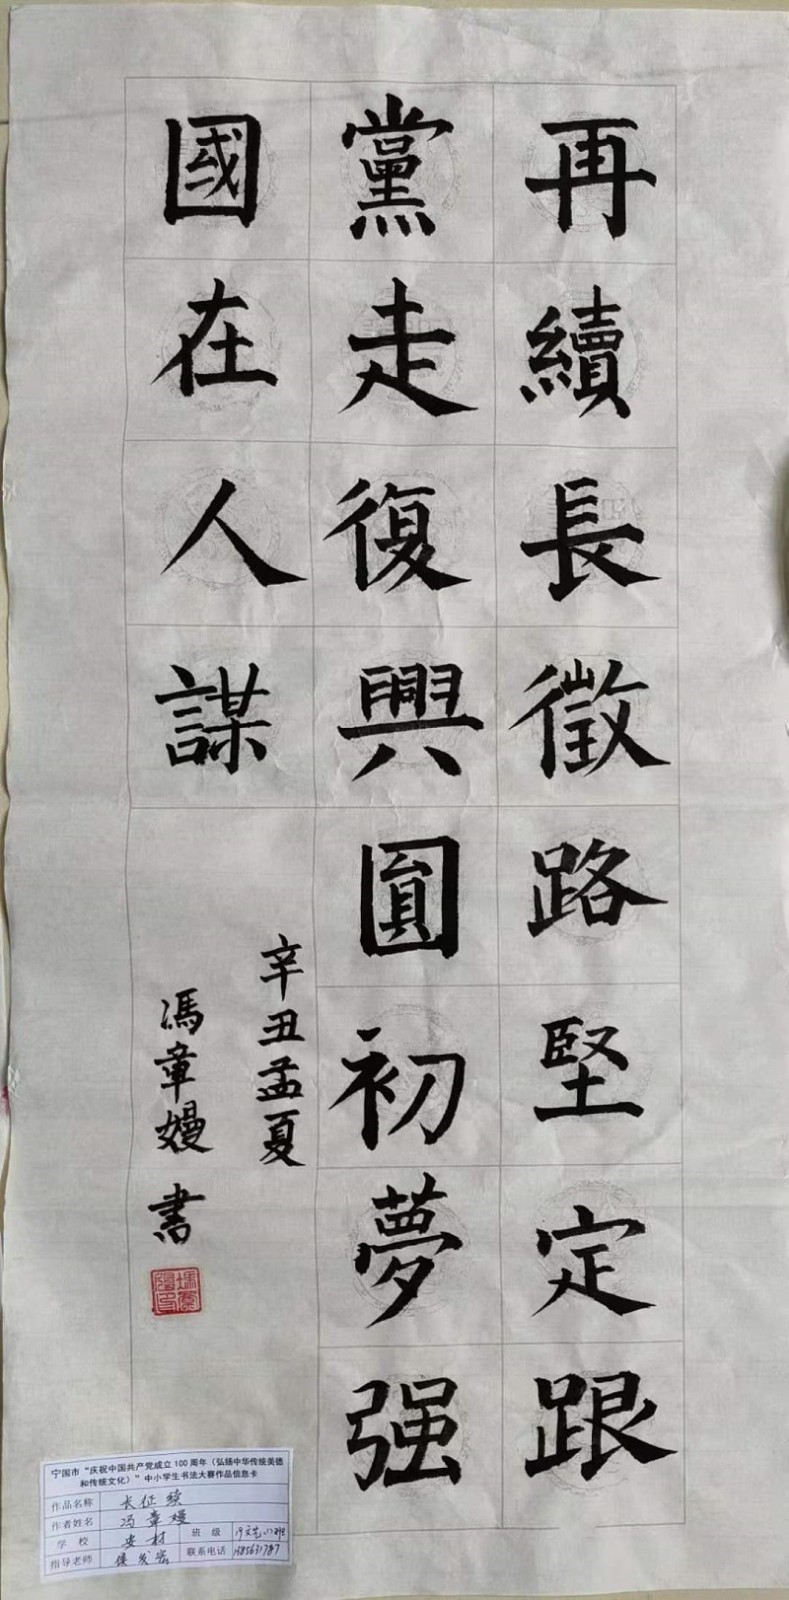 再續長徵路堅定跟
黨走復興圓初夢强
國在人謀
辛丑孟夏
馮章嫚書
宁国市“庆祝中国共产党成立100周年（弘扬中华传统美德
和传统文化）”中小学生书法大赛作品信息卡
作品名称 长征颂
作者姓名 冯章嫚
学 校 安材 班 级
指导老师 联系电话